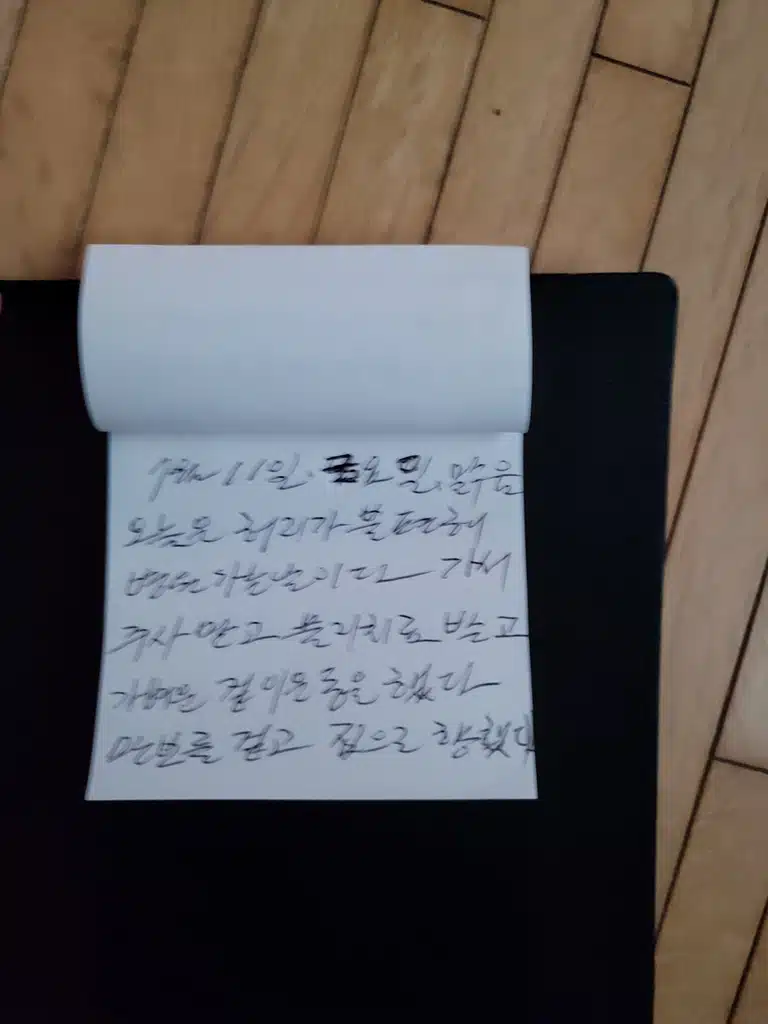 7월 11일. 금요일. 맑음
오늘은 허리가 불편해
병원 가는 날이다 가서
주사 맞고 물리치료 받고
가벼운 걷이운동을 했다
만보를 걷고 집으로 향했다